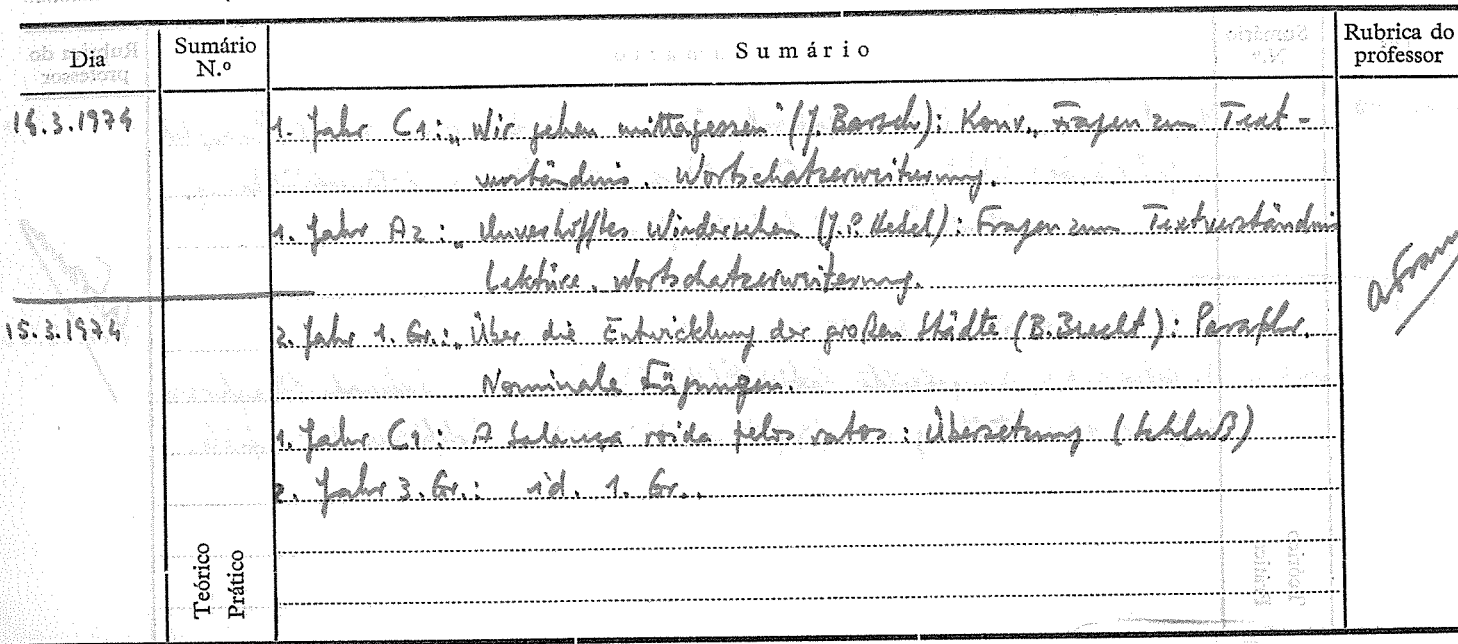 Dia Sumário N.º Sumário Rubrica do professor
14.3.1974 1. Jahr C1: „Wir gehen mittagessen" (J. Barsch): Konv., Fragen zum Text-
verständnis. Wortschatzerweiterung.
1. Jahr A2: „Unverhofftes Wiedersehen (J.P. Hebel): Fragen zum Textverständnis
Lektüre. Wortschatzerweiterung.
15.3.1974 2. Jahr 1. Gr.: „Über die Entwicklung der großen Städte (B. Brecht): Paraphr.
Nominale Fügungen.
1. Jahr C1: A balança roida pelos ratos: Übersetzung (Schluß)
2. Jahr 3. Gr.: id. 1. Gr..
Teórico
Prático